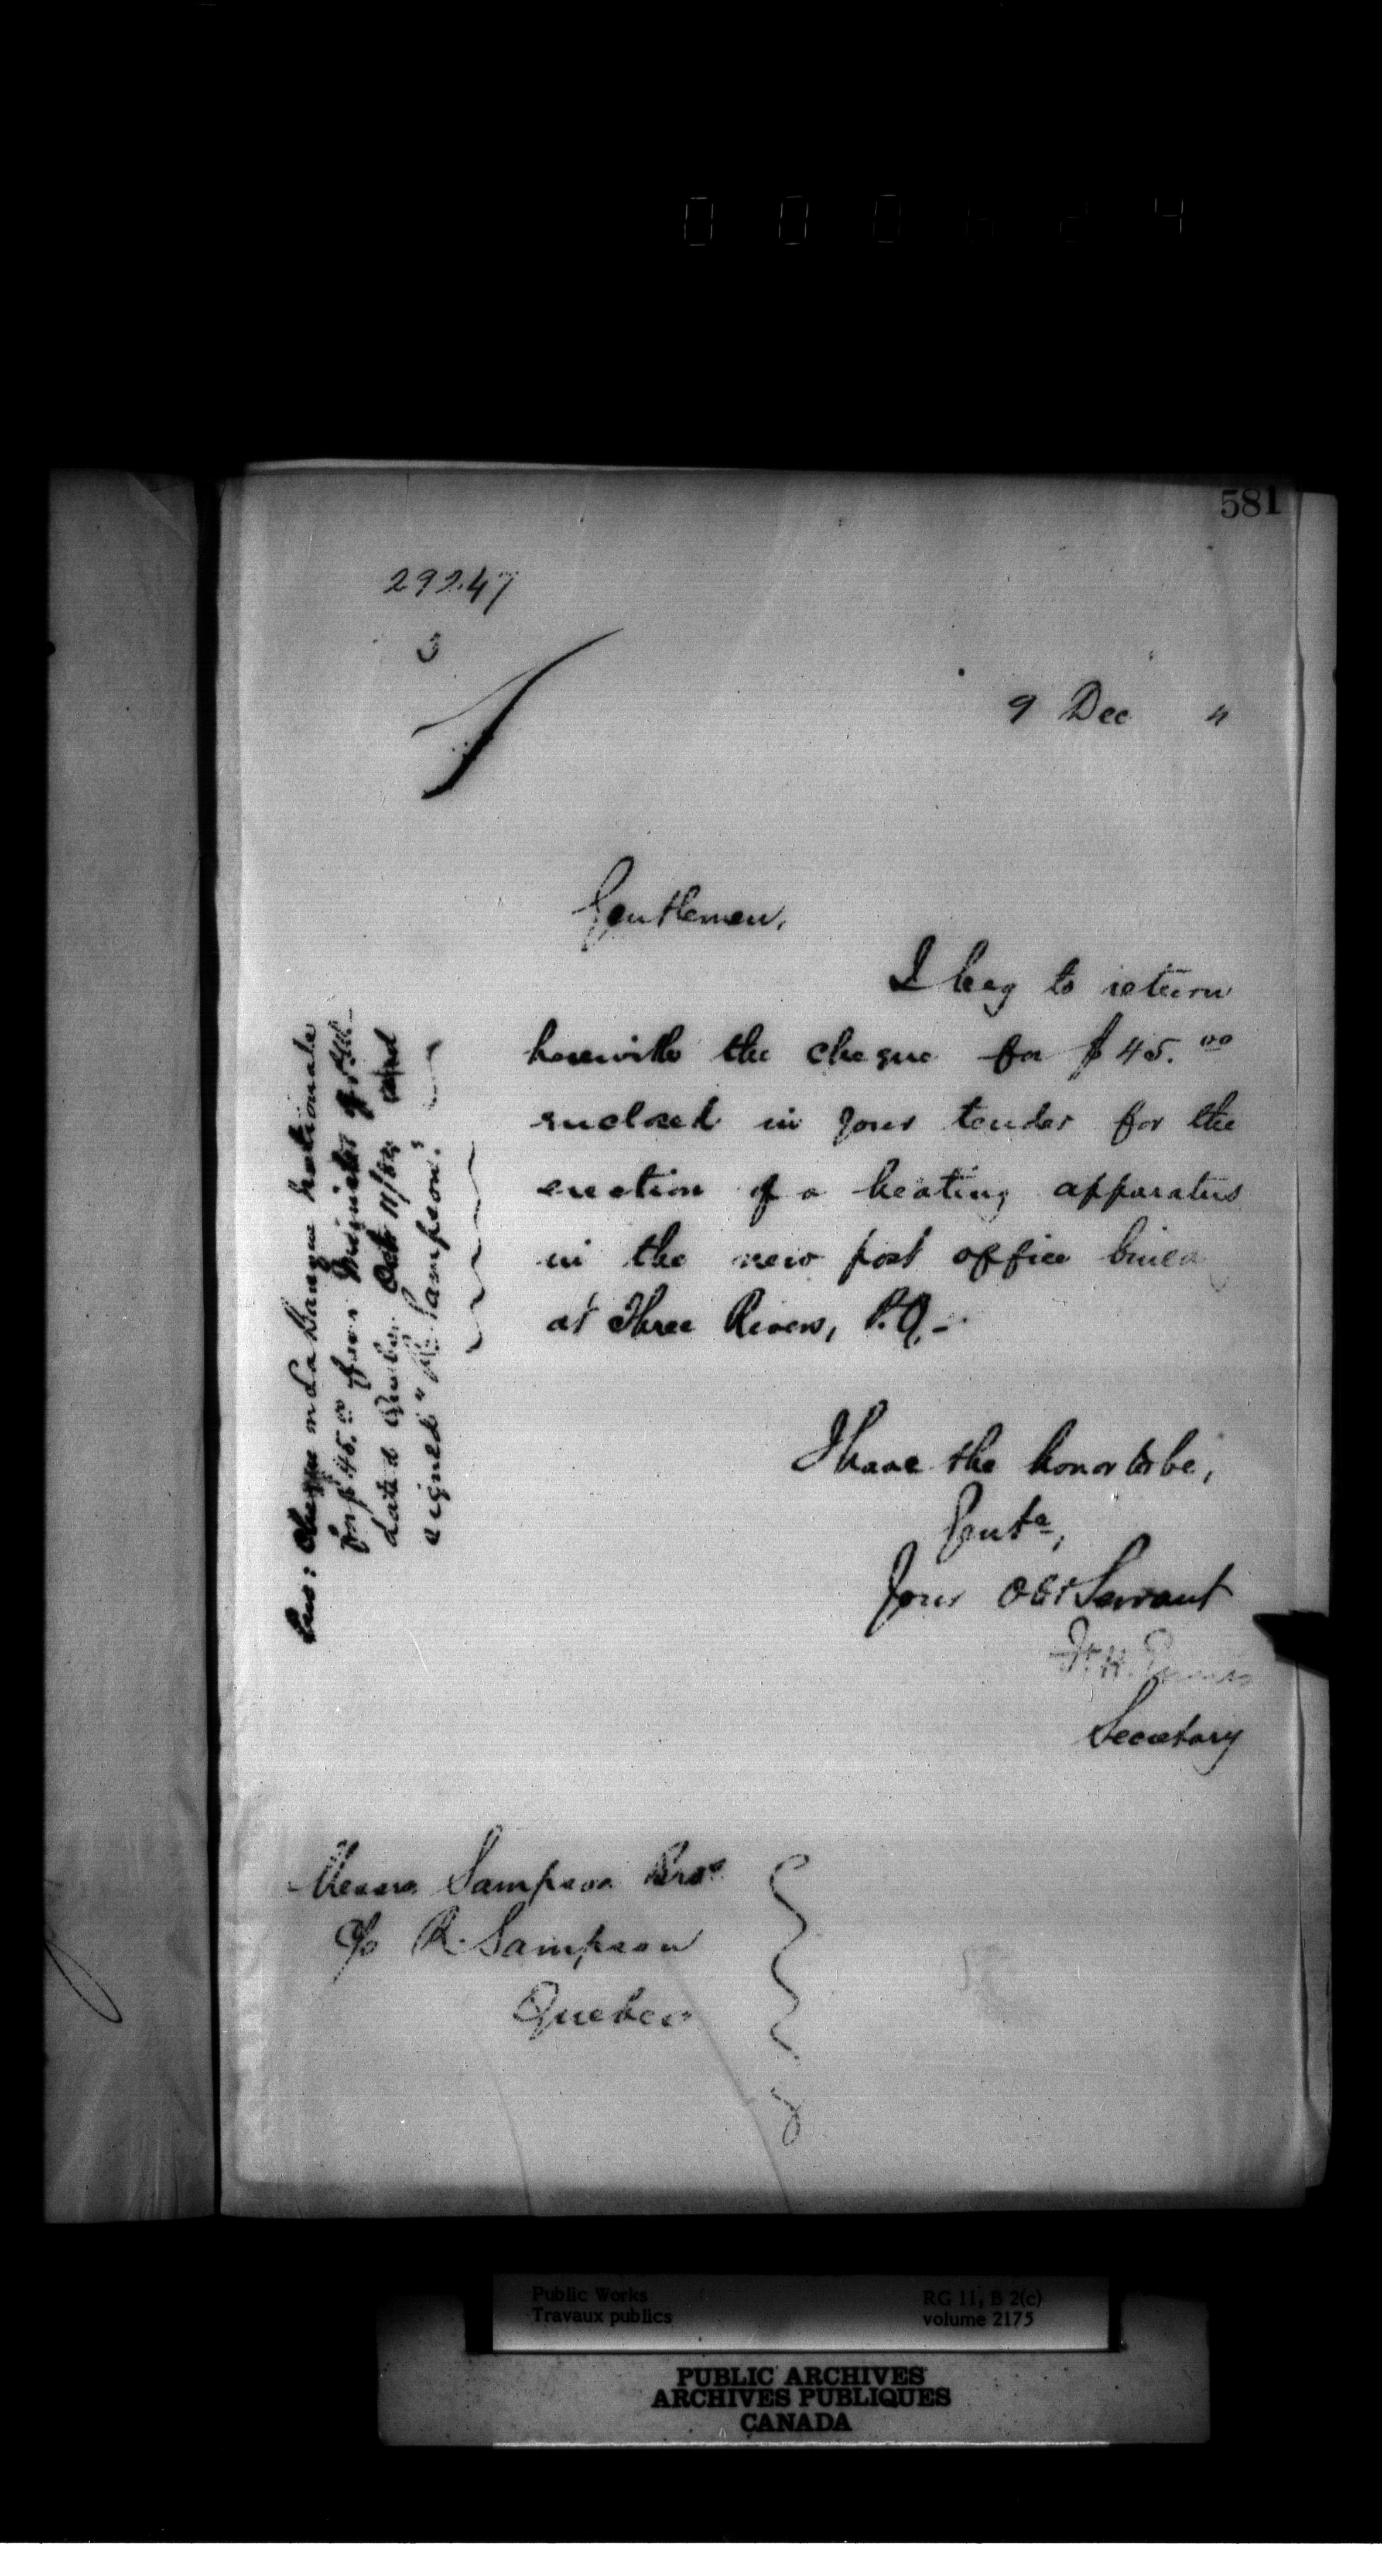 581
29247
3
9 Dec "
Gentlemen,
I beg to return
herewith the cheque for $45.00
enclosed in your tender for the
erection of a heating apparatus
in the new post office build
at Three Rivers, P.Q.-
I have the honor to be,
Gents,
Your Obt Servant
Secretary
Enc: Cheque on La Banque Nationale
for $45.00 favor Minister of P.W.
dated Quebec Oct 11/84 and
signed " Sampson."
Messrs Sampson Bros
c/o R. Sampson
Quebec
Public Works
Travaux publics
RG 11, B 2(c)
volume 2175
PUBLIC ARCHIVES
ARCHIVES PUBLIQUES
CANADA